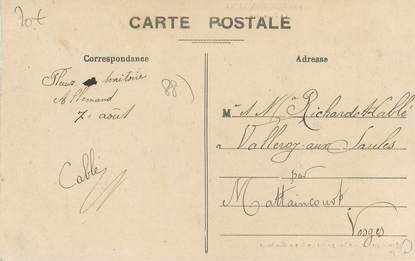 20€
CARTE POSTALE
Correspondance
Adresse
Allemand
7 août
Cablé
(88)
M. et Mme Richard Cablé
à Valleroy-aux-Saules
par
Mattaincourt
Vosges